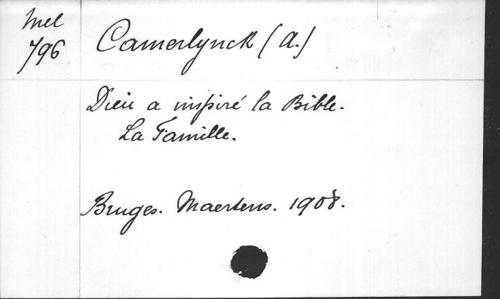 Mel
796
Camerlynck (A.)
Dieu a inspiré la Bible.
La Famille.
Bruges. Maertens. 1908.